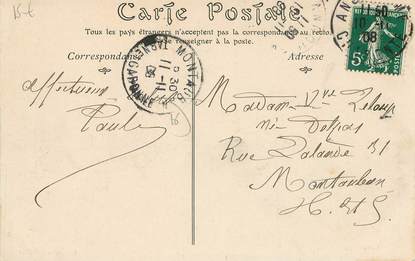 15-€
Carte Postale
Tous les pays étrangers n'acceptent pas la correspondance au recto.
se renseigner à la poste.
Correspondance
Adresse
MONTAUBAN
TARN-ET-GARONNE
5 30
11-11
08
11 50
10-11
08
5c
affectueux
Paule
Madame Vve
née Delpas
Rue Lalande 31
Montauban